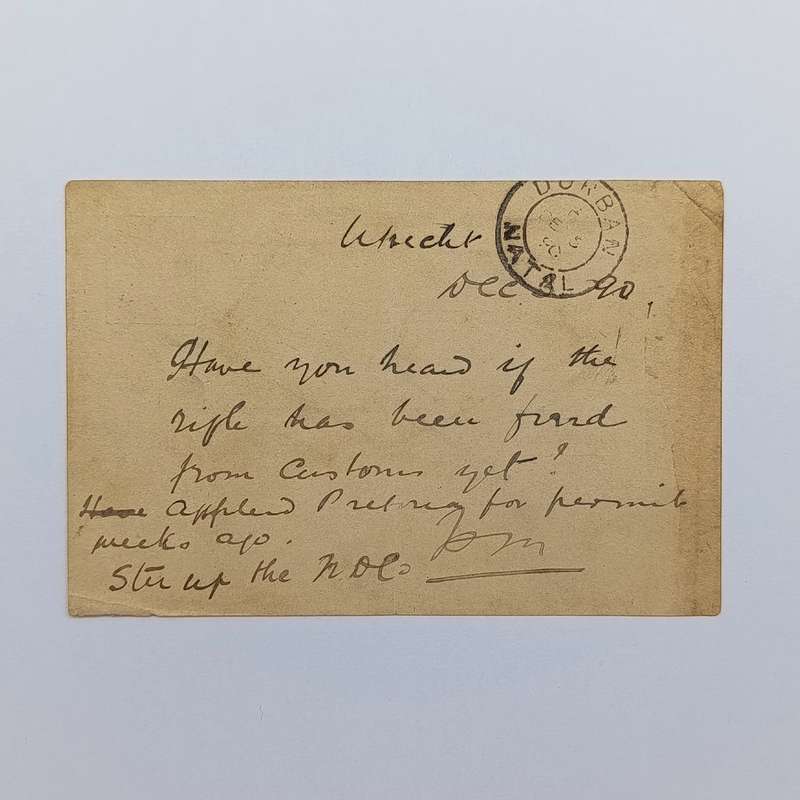 Utrecht
DURBAN
NATAL
Dec 90
Have you heard if the
rifle has been
from Customs yet?
Have Applied Pretoria for permit
weeks ago.
Stir up the